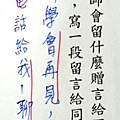 師會留什麼贈言給
，寫一段留言給同
學會再見，
話給我，聊